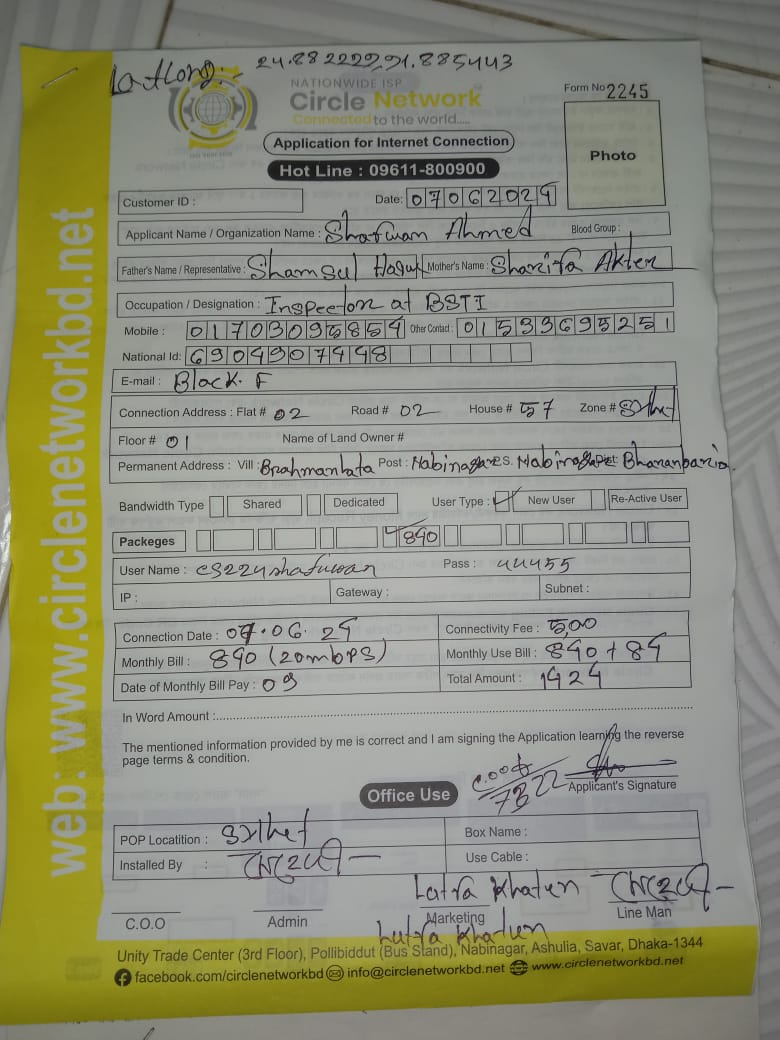 Lat Long :- 24.882222, 91.885443
NATIONWIDE ISP
Circle Network
Connected to the world.....
Form No 2245
Application for Internet Connection
Hot Line : 09611-800900
Photo
Customer ID :
Date: 07062024
Applicant Name / Organization Name : Shafwan Ahmed Blood Group :
Father's Name / Representative : Shamsul Haque Mother's Name : Sharifa Akter
Occupation / Designation : Inspector at BSTI
Mobile : 01703095854 Other Contact : 01533695251
National Id: 6904907448
E-mail : Black. F
Connection Address : Flat # 02 Road # 02 House # 57 Zone # Sylhet
Floor # 01 Name of Land Owner #
Permanent Address : Vill : Brahmanhata Post : Nabinagar P.S. Nabinagar Dist: Bhamanbaria
Bandwidth Type Shared Dedicated User Type : ✓ New User Re-Active User
Packeges ✓ 840
User Name : cs224shafwan Pass : 44455
IP : Gateway : Subnet :
Connection Date : 07.06.24 Connectivity Fee : 500
Monthly Bill : 840 (20mbps) Monthly Use Bill : 840 + 84
Date of Monthly Bill Pay : 09 Total Amount : 1424
In Word Amount :
The mentioned information provided by me is correct and I am signing the Application learning the reverse
page terms & condition.
Applicant's Signature
Office Use
POP Locatition : Sylhet Box Name :
Installed By : Use Cable :
Lutfa Khaten
C.O.O Admin Marketing Line Man
Lutfa Khaten
Unity Trade Center (3rd Floor), Pollibiddut (Bus Stand), Nabinagar, Ashulia, Savar, Dhaka-1344
facebook.com/circlenetworkbd info@circlenetworkbd.net www.circlenetworkbd.net
web: www.circlenetworkbd.net